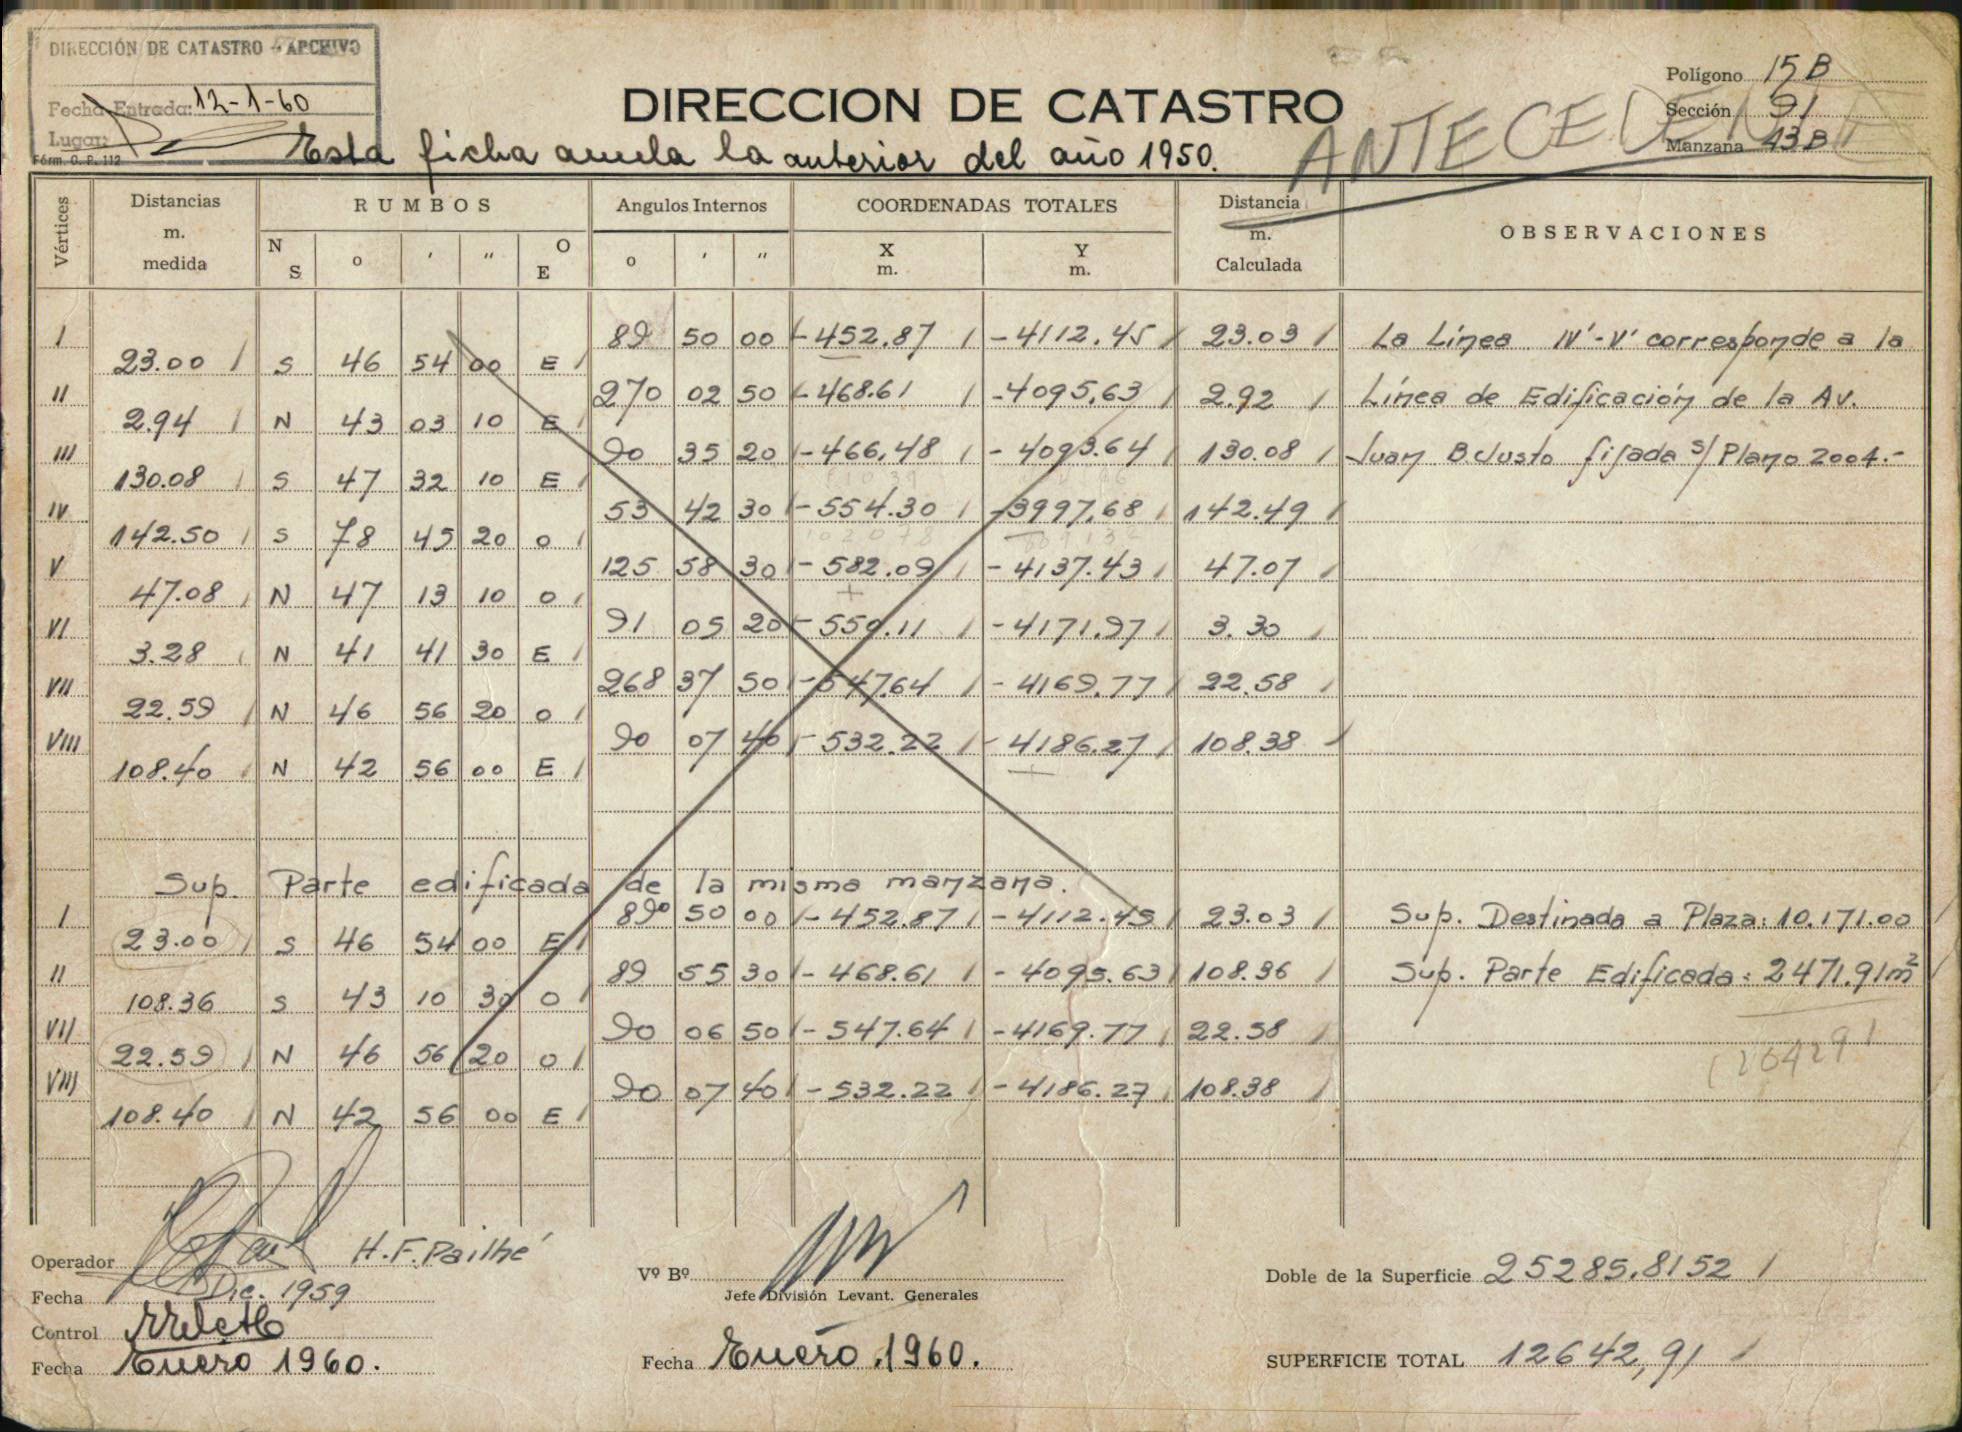 DIRECCIÓN DE CATASTRO - ARCHIVO
Fecha Entrada: 12-1-60
Lugar:
Fórm. O. P. 112
DIRECCION DE CATASTRO
Esta ficha anula la anterior del año 1950.
ANTECEDENTE
Polígono 15B
Sección 91
Manzana 43B
Vértices Distancias m. medida RUMBOS Angulos Internos COORDENADAS TOTALES Distancia m. Calculada OBSERVACIONES
N S o ' " O E o ' " X m. Y m.
I 89 50 00 -452.87 -4112.45 23.03 La Línea IV'-V' corresponde a la
23.00 S 46 54 00 E
II 270 02 50 -468.61 -4095.63 2.92 Línea de Edificación de la Av.
2.94 N 43 03 10 E
III 90 35 20 -466.48 -4093.64 130.08 Juan B. Justo fijada s/ Plano 2004.-
130.08 S 47 32 10 E
IV 53 42 30 -554.30 -3997.68 142.49
142.50 S 78 45 20 O
V 125 58 30 -582.09 -4137.43 47.07
47.08 N 47 13 10 O
VI 91 05 20 -550.11 -4171.97 3.30
3.28 N 41 41 30 E
VII 268 37 50 -547.64 -4169.77 22.58
22.59 N 46 56 20 O
VIII 90 07 40 -532.22 -4186.27 108.38
108.40 N 42 56 00 E
Sup. Parte edificada de la misma manzana.
I 89º 50 00 -452.87 -4112.45 23.03 Sup. Destinada a Plaza: 10.171.00
23.00 S 46 54 00 E
II 89 55 30 -468.61 -4095.63 108.36 Sup. Parte Edificada: 2471.91m²
108.36 S 43 10 30 O
VII 90 06 50 -547.64 -4169.77 22.58
22.59 N 46 56 20 O
1264291
VIII 90 07 40 -532.22 -4186.27 108.38
108.40 N 42 56 00 E
Operador H.F. Pailhé
Fecha Dic. 1959
Control
Fecha Enero 1960.
Vº Bº
Jefe División Levant. Generales
Fecha Enero 1960.
Doble de la Superficie 25285,8152
SUPERFICIE TOTAL 12642,91